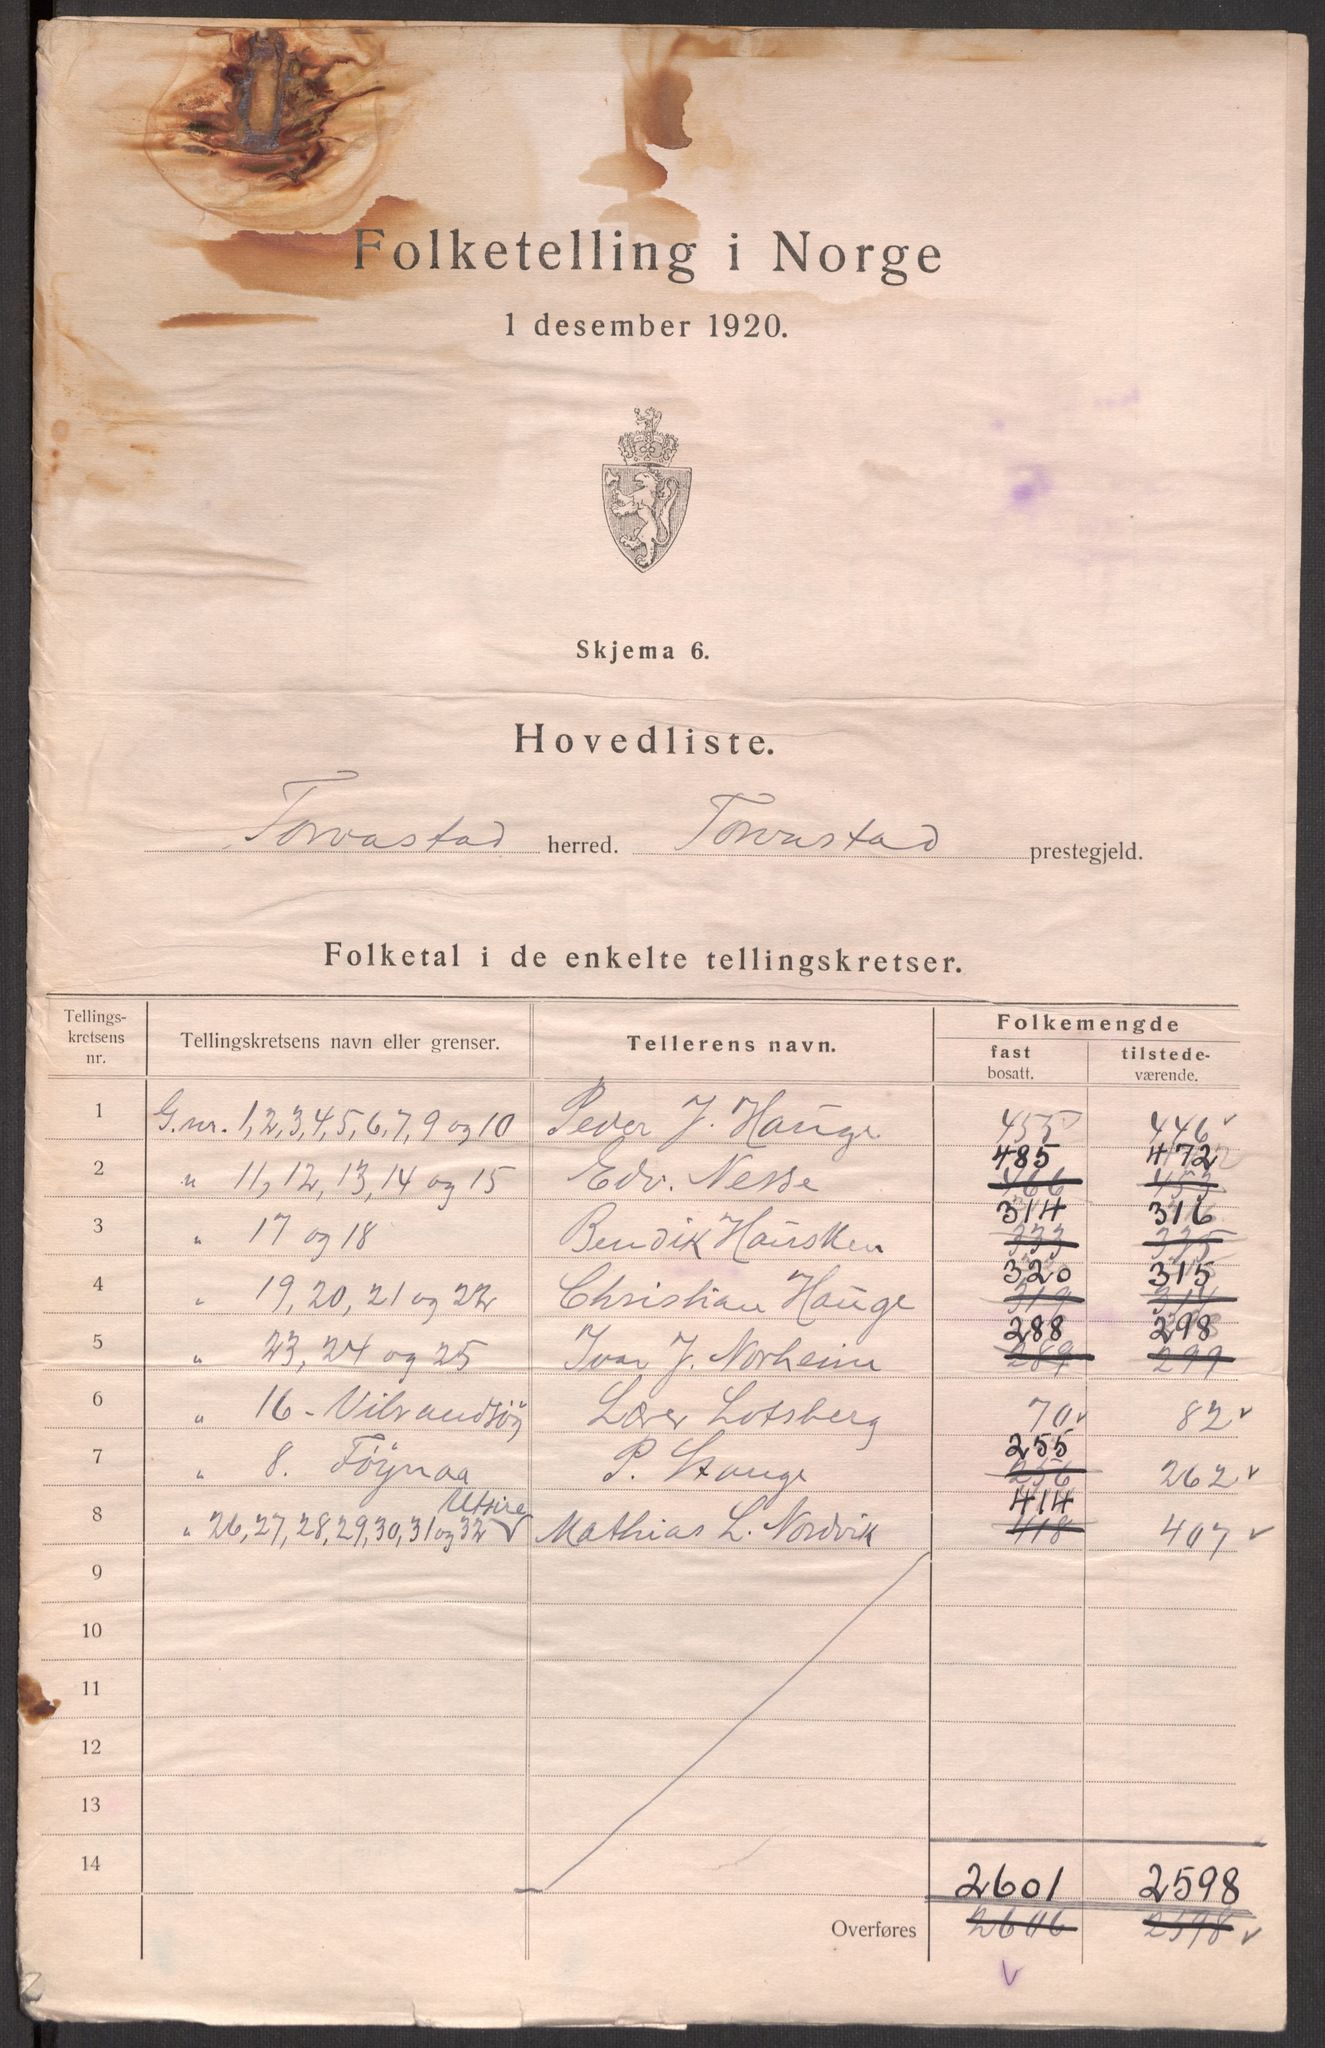 Folketelling i Norge
1 desember 1920.
Skjema 6.
Hovedliste.
Torvastad herred. Torvastad prestegjeld.
Folketal i de enkelte tellingskretser.
Tellingskretsens nr. Tellingskretsens navn eller grenser. Tellerens navn. Folkemengde fast bosatt. tilstedeværende.
1 G.nr. 1, 2, 3, 4, 5, 6, 7, 9 og 10 Peder J. Hauge 455 446
485 472
2 " 11, 12, 13, 14 og 15 Edv. Nesse 466 453
314 316
3 " 17 og 18 Bendik Hausken 333 335
320 315
4 " 19, 20, 21 og 22 Christian Hauge 319 314
288 298
5 " 23, 24 og 25 Ivar J. Norheim 289 299
6 " 16 - Vibrandsöy Lærer Lotsberg 70 82
255
7 " 8. Föynaa P. Stange 256 262
Utsire 414
8 " 26, 27, 28, 29, 30, 31 og 32 Mathias L. Nordvik 418 407
9
10
11
12
13
14 2601 2598
Overføres 2606 2598